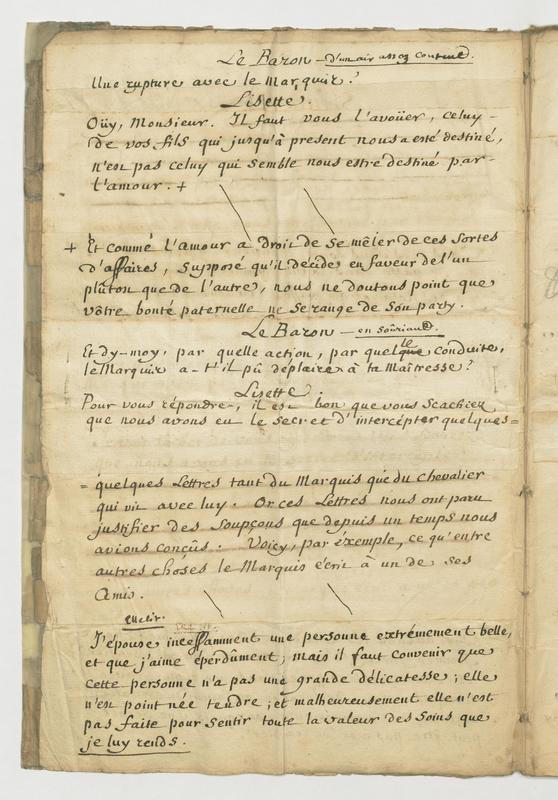 Le Baron — d'un air assez content.
Une rupture avec le Marquis?
Lisette.
Oüy, Monsieur. Il faut vous l'avoüer, celuy-
de vos fils qui jusqu'à present nous a esté destiné,
n'est pas celuy qui semble nous estre destiné par-
l'amour. +
+ Et comme l'amour a droit de se mêler de ces sortes
d'affaires, supposé qu'il décide en faveur de l'un
plûton que de l'autre, nous ne doutons point que
vôtre bonté paternelle ne se range de son party.
Le Baron — en soûriant.
Et dy-moy, par quelle action, par quelle conduite,
le Marquis a-t'il pû déplaire à ta Maîtresse?
Lisette.
Pour vous répondre, il est bon que vous scachiez
que nous avons eu le secret d'intercépter quelques =
= quelques Lettres tant du Marquis que du chevalier
qui vit avec luy. Or ces Lettres nous ont paru
justifier des soupçons que depuis un temps nous
avions conçûs. Voicy, par éxemple, ce qu'entre
autres choses le Marquis écrit à un de ses
Amis.
J'épouse incessamment une personne extrémement belle,
et que j'aime éperdûment; mais il faut convenir que
cette personne n'a pas une grande délicatesse; elle
n'est point née tendre; et malheureusement elle n'est
pas faite pour sentir toute la valeur des soins que
je luy rends.